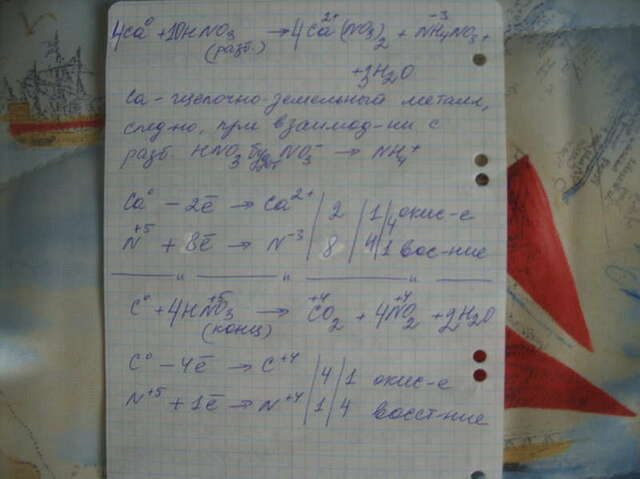 4Ca⁰ + 10HNO₃ → 4Ca²⁺(NO₃)₂ + N⁻³H₄NO₃ +
(разб.)
+ 3H₂O
Ca - щелочно-земельный металл,
след-но, при взаимод-ии с
разб. HNO₃ будет NO₃⁻ → NH₄⁺
Ca⁰ - 2ē → Ca²⁺ / 2 / 1 / 4 окис-е
N⁺⁵ + 8ē → N⁻³ / 8 / 4 / 1 вос-ние
C⁰ + 4HN⁺⁵O₃ → C⁺⁴O₂ + 4N⁺⁴O₂ + 2H₂O
(конц)
C⁰ - 4ē → C⁺⁴ / 4 / 1 окис-е
N⁺⁵ + 1ē → N⁺⁴ / 1 / 4 восст-ние